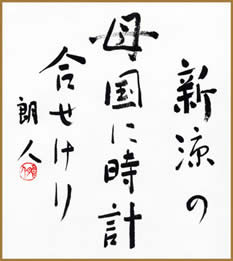 新涼の
母国に時計
合せけり
朗人